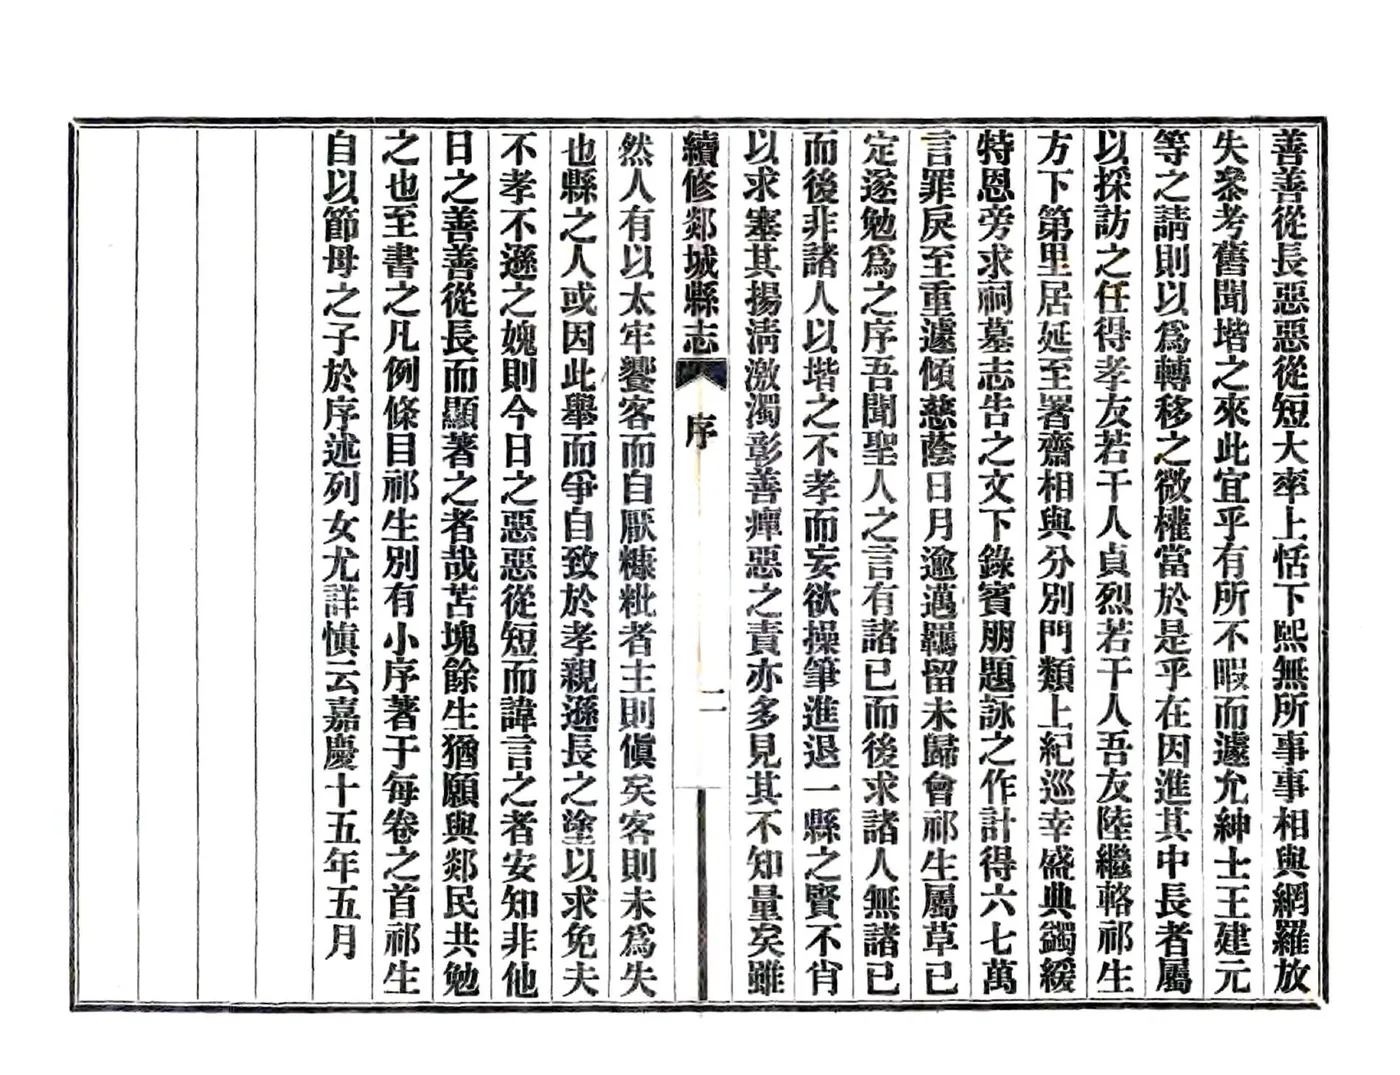 善善從長惡惡從短大率上恬下熙無所事事相與網羅放
失叅考舊聞堦之來此宜乎有所不暇而遽允紳士王建元
等之請則以爲轉移之微權當於是乎在因進其中長者屬
以採訪之任得孝友若干人貞烈若干人吾友陸繼輅祁生
方下第里居延至署齋相與分別門類上紀巡幸盛典蠲緩
特恩旁求祠墓志告之文下錄賓朋題詠之作計得六七萬
言罪戾至重遽傾慈蔭日月逾邁羈留未歸會祁生屬草已
定遂勉爲之序吾聞聖人之言有諸已而後求諸人無諸已
而後非諸人以堦之不孝而妄欲操筆進退一縣之賢不肖
以求塞其揚淸激濁彰善癉惡之責亦多見其不知量矣雖
續修郯城縣志 序 二
然人有以太牢饗客而自厭糠粃者主則傎矣客則未爲失
也縣之人或因此舉而爭自致於孝親遜長之塗以求免夫
不孝不遜之媿則今日之惡惡從短而諱言之者安知非他
日之善善從長而顯著之者哉苫塊餘生猶願與郯民共勉
之也至書之凡例條目祁生別有小序著于每卷之首祁生
自以節母之子於序述列女尤詳愼云嘉慶十五年五月